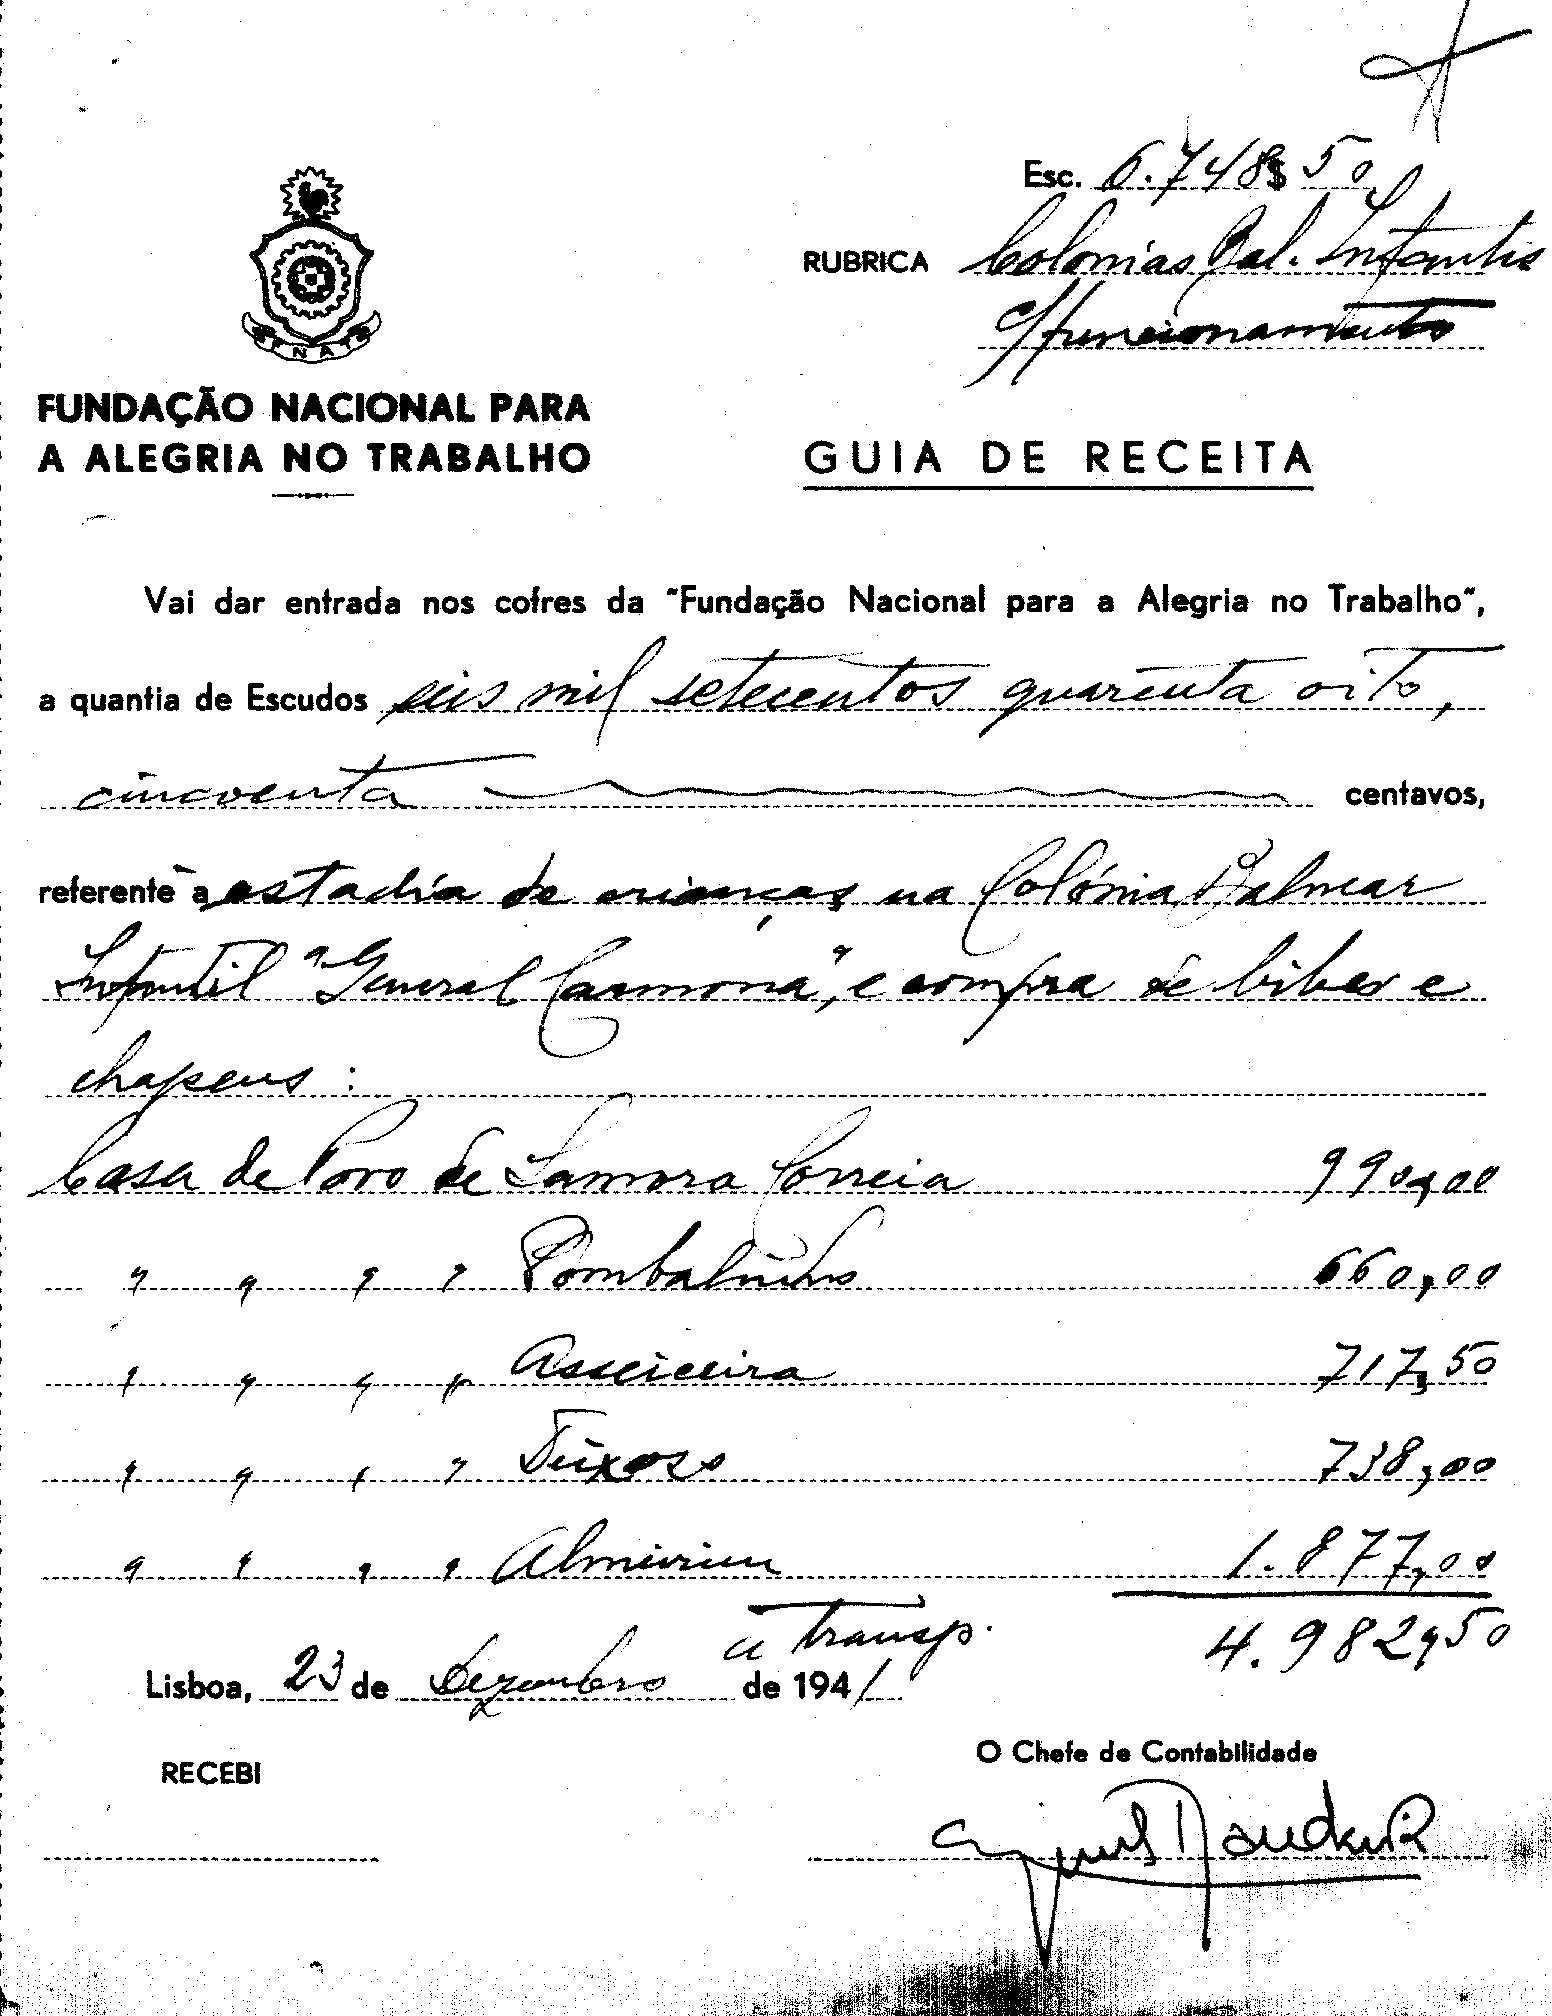 Esc. 6.748$50
RUBRICA Colonias Bal. Infantis
c/funcionamento
FNAT
FUNDAÇÃO NACIONAL PARA
A ALEGRIA NO TRABALHO
GUIA DE RECEITA
Vai dar entrada nos cofres da "Fundação Nacional para a Alegria no Trabalho",
a quantia de Escudos seis mil setecentos quarenta oito,
cincoenta centavos,
referente à estadia de crianças na Colónia Balnear
Infantil "General Carmona", e compra de bibes e
chapeus:
Casa de Povo de Samora Correia 990,00
" " " " Pombalinho 660,00
" " " " Asseiceira 717,50
" " " " Teixoso 738,00
" " " " Almeirim 1.877,00
a transp. 4.982,50
Lisboa, 23 de Dezembro de 1941
RECEBI
O Chefe de Contabilidade